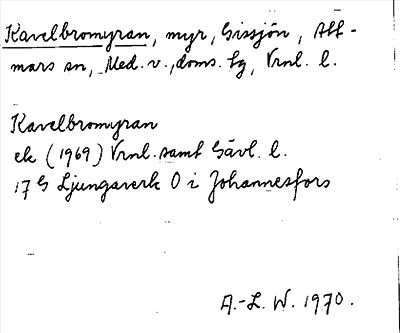 Kavelbromyran, myr, Gissjön, Att-
mars sn, Med. v., doms. tg, Vrnl. l.
Kavelbromyran
ek (1969) Vrnl. samt Gävl. l.
17 G Ljungaverk O i Johannesfors
A.-L. W. 1970.